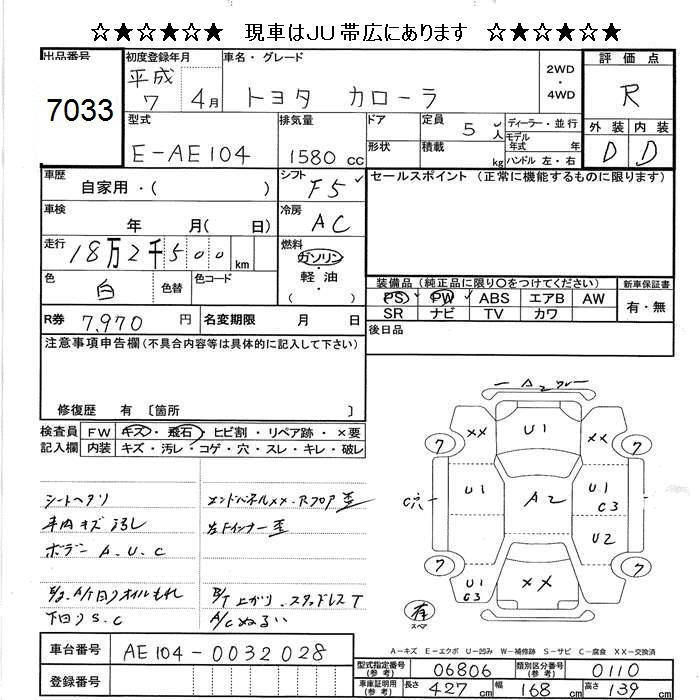 ☆★☆★☆★ 現車はJU帯広にあります ☆★☆★☆★
出品番号 初度登録年月 車名・グレード 評価点
7033 平成 7 4月 トヨタ カローラ 2WD・4WD R
型式 排気量 ドア 定員 5人 ディーラー・並行 外装 内装
E-AE104 1580cc 形状 積載 kg モデル年式 年 D D
ハンドル 左・右
車歴 シフト セールスポイント (正常に機能するものに限ります)
自家用・( ) F5
車検 冷房
年 月( 日) AC
走行 燃料
18万2千500km ガソリン・軽油・( )
色 色替 色コード
白
装備品(純正品に限り○をつけてください) 新車保証書
PS PW ABS エアB AW 有・無
SR ナビ TV カワ
R券 7,970円 名変期限 月 日 後日品
注意事項申告欄(不具合内容等は具体的に記入して下さい)
修復歴 有 〔箇所 〕
検査員記入欄 FW キズ・飛石・ヒビ割・リペア跡・×要
内装 キズ・汚レ・コゲ・穴・スレ・キレ・破レ
シートヘタリ エンドパネルXX・Rフロア歪
車内キズ汚レ 左Fインナー歪
ボデーA.U.C
下回りS.C A/Cぬるい
A2
XX U1 XX
7 7
C穴 U1 A2 U1 C3
U2
7 U1 C3 XX 7
有
スペア
A-キズ E-エクボ U-凹み W-補修跡 S-サビ C-腐食 XX-交換済
車台番号 AE104-0032028
登録番号
型式指定番号(参考) 06806 類別区分番号(参考) 0110
車庫証明用(参考) 長さ 427cm 幅 168cm 高さ 139cm